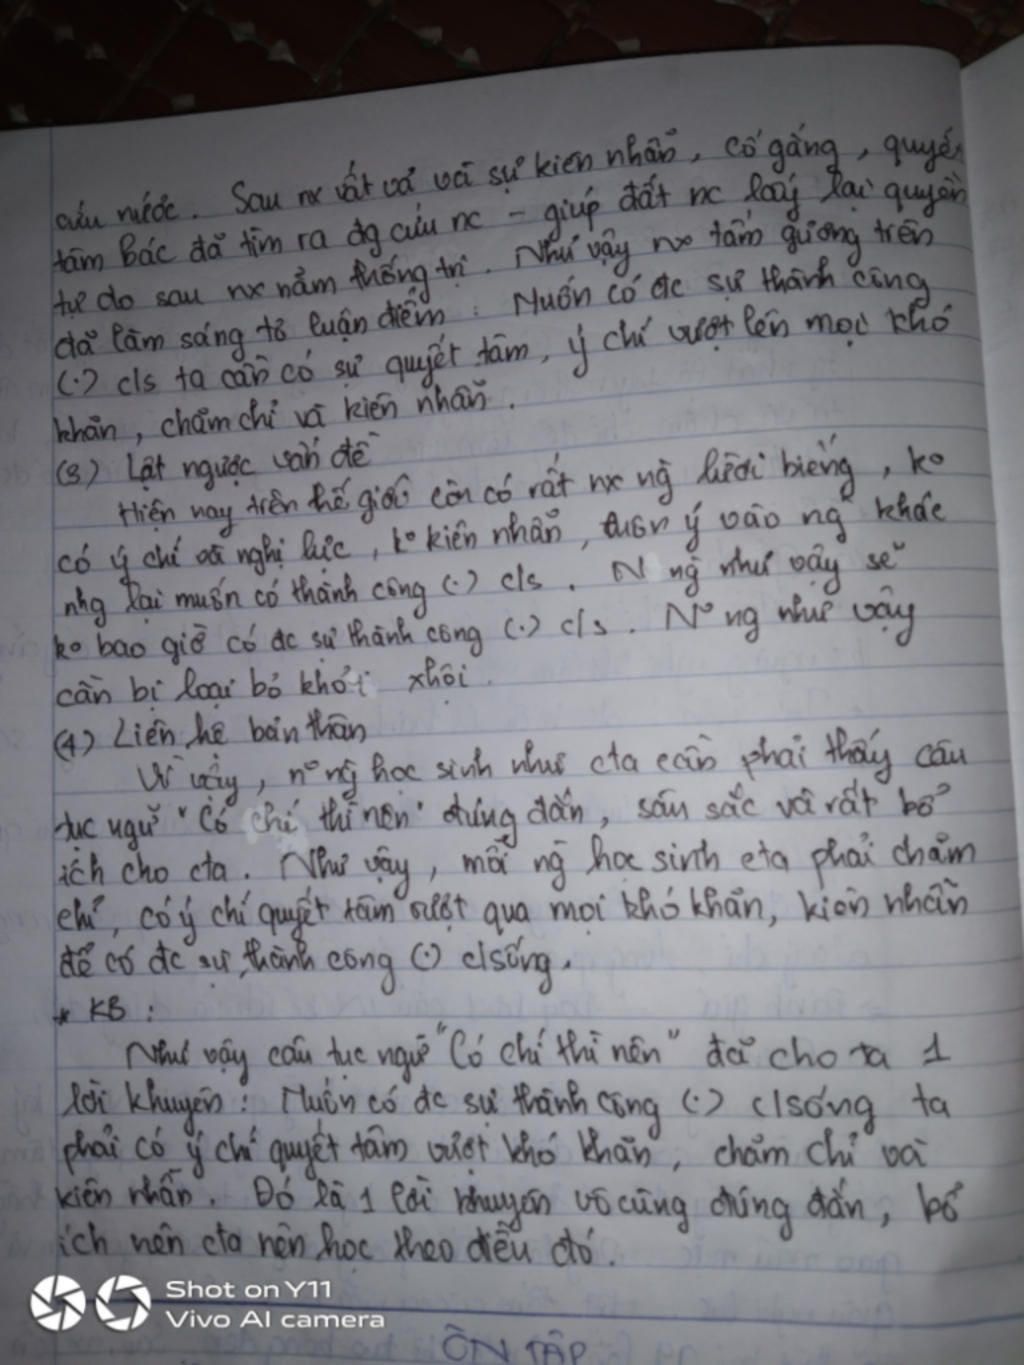 cứu nước. Sau nx vất vả và sự kiên nhẫn, cố gắng, quyết
tâm Bác đã tìm ra đg cứu nc - giúp đất nc lấy lại quyền
tự do sau nx năm thống trị. Như vậy nx tấm gương trên
đã làm sáng tỏ luận điểm: Muốn có đc sự thành công
(.) c/s ta cần có sự quyết tâm, ý chí vượt lên mọi khó
khăn, chăm chỉ và kiên nhẫn.
(3) Lật ngược vấn đề
Hiện nay trên thế giới còn có rất nx ng lười biếng, ko
có ý chí và nghị lực, ko kiên nhẫn, ý vào ng khác
nhg lại muốn có thành công (.) c/s. N ng như vậy sẽ
ko bao giờ có đc sự thành công (.) c/s. No ng như vậy
cần bị loại bỏ khỏi xhội.
(4) Liên hệ bản thân
Vì vậy, no ng học sinh như cta cần phải thấy câu
tục ngữ "Có chí thì nên" đúng đắn, sâu sắc và rất bổ
ích cho cta. Như vậy, mỗi ng học sinh cta phải chăm
chỉ, có ý chí quyết tâm vượt qua mọi khó khăn, kiên nhẫn
để có đc sự thành công (.) c/sống.
* KB:
Như vậy câu tục ngữ "Có chí thì nên" đã cho ta 1
lời khuyên: Muốn có đc sự thành công (.) c/sống ta
phải có ý chí quyết tâm vượt khó khăn, chăm chỉ và
kiên nhẫn. Đó là 1 lời khuyên vô cùng đúng đắn, bổ
ích nên cta nên học theo điều đó.
Shot on Y11
Vivo AI camera
ÔN TẬP